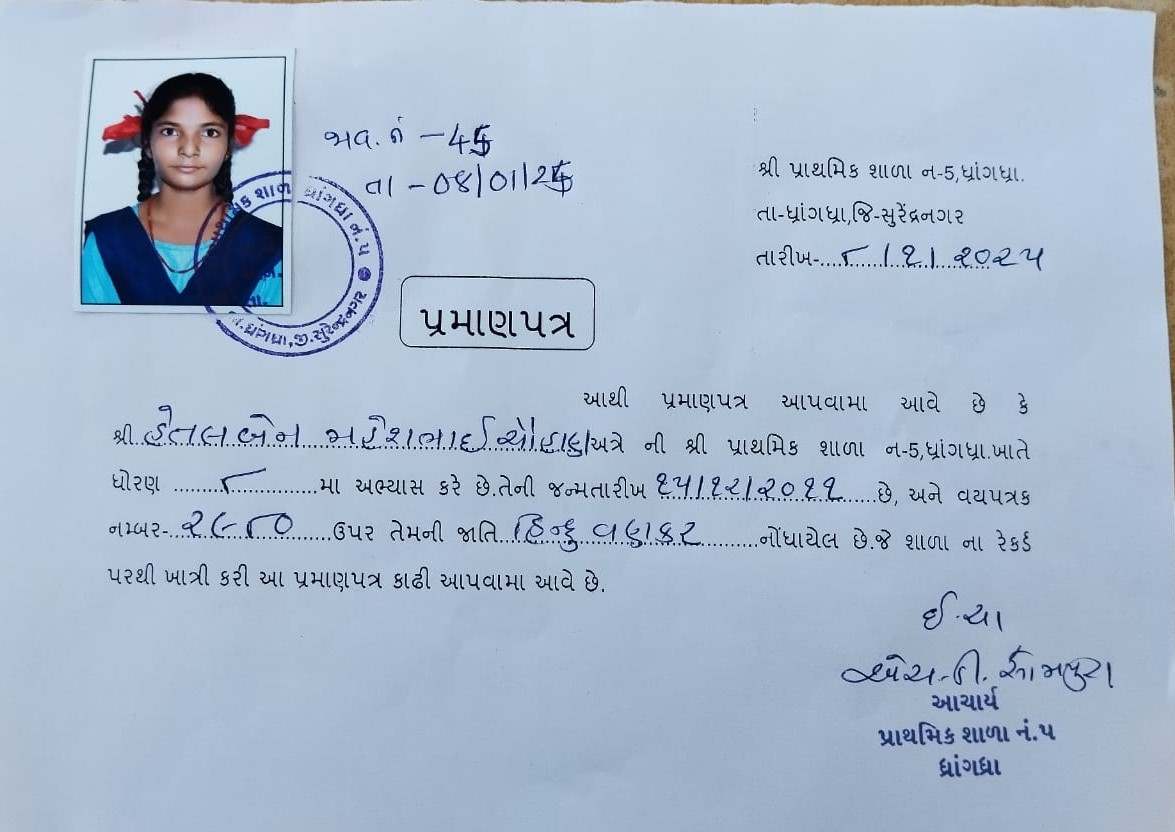 જાવ. નં - 45
તા - 08/01/25
શ્રી પ્રાથમિક શાળા ન-5,ધ્રાંગધ્રા.
તા-ધ્રાંગધ્રા,જિ-સુરેંદ્રનગર
તારીખ-....૮./૧./.૨૦૨૫
શાળા ધ્રાંગધ્રા નં.૫
ધ્રાંગધ્રા,જી.સુરેન્દ્રનગર
પ્રમાણપત્ર
આથી પ્રમાણપત્ર આપવામા આવે છે કે
શ્રી.હેતલબેન મહેશભાઈ ચૌહાણ અત્રે ની શ્રી પ્રાથમિક શાળા ન-5,ધ્રાંગધ્રા.ખાતે
ધોરણ ........૮..............મા અભ્યાસ કરે છે.તેની જન્મતારીખ ૧૫/૧૨/૨૦૧૧......છે, અને વયપત્રક
નમ્બર-..૨૯૮૦......ઉપર તેમની જાતિ..હિન્દુ વણકર.........નોંધાયેલ છે.જે શાળા ના રેકર્ડ
પરથી ખાત્રી કરી આ પ્રમાણપત્ર કાઢી આપવામા આવે છે.
ઈ.ચા
આચાર્ય
પ્રાથમિક શાળા નં.૫
ધ્રાંગધ્રા